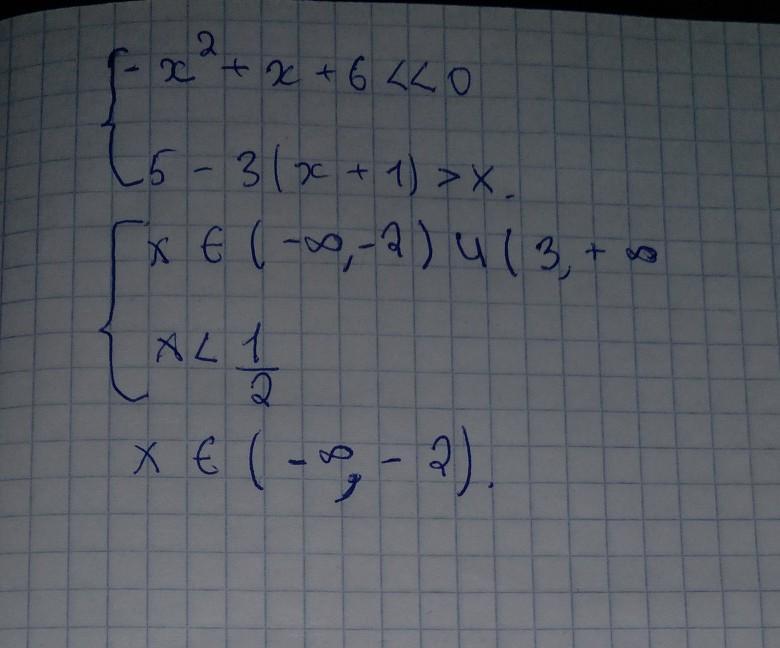 { - x² + x + 6 << 0
5 - 3(x + 1) > x.
{ x ∈ (-∞, -2) ∪ (3, + ∞
x < 1/2
x ∈ (-∞, - 2).